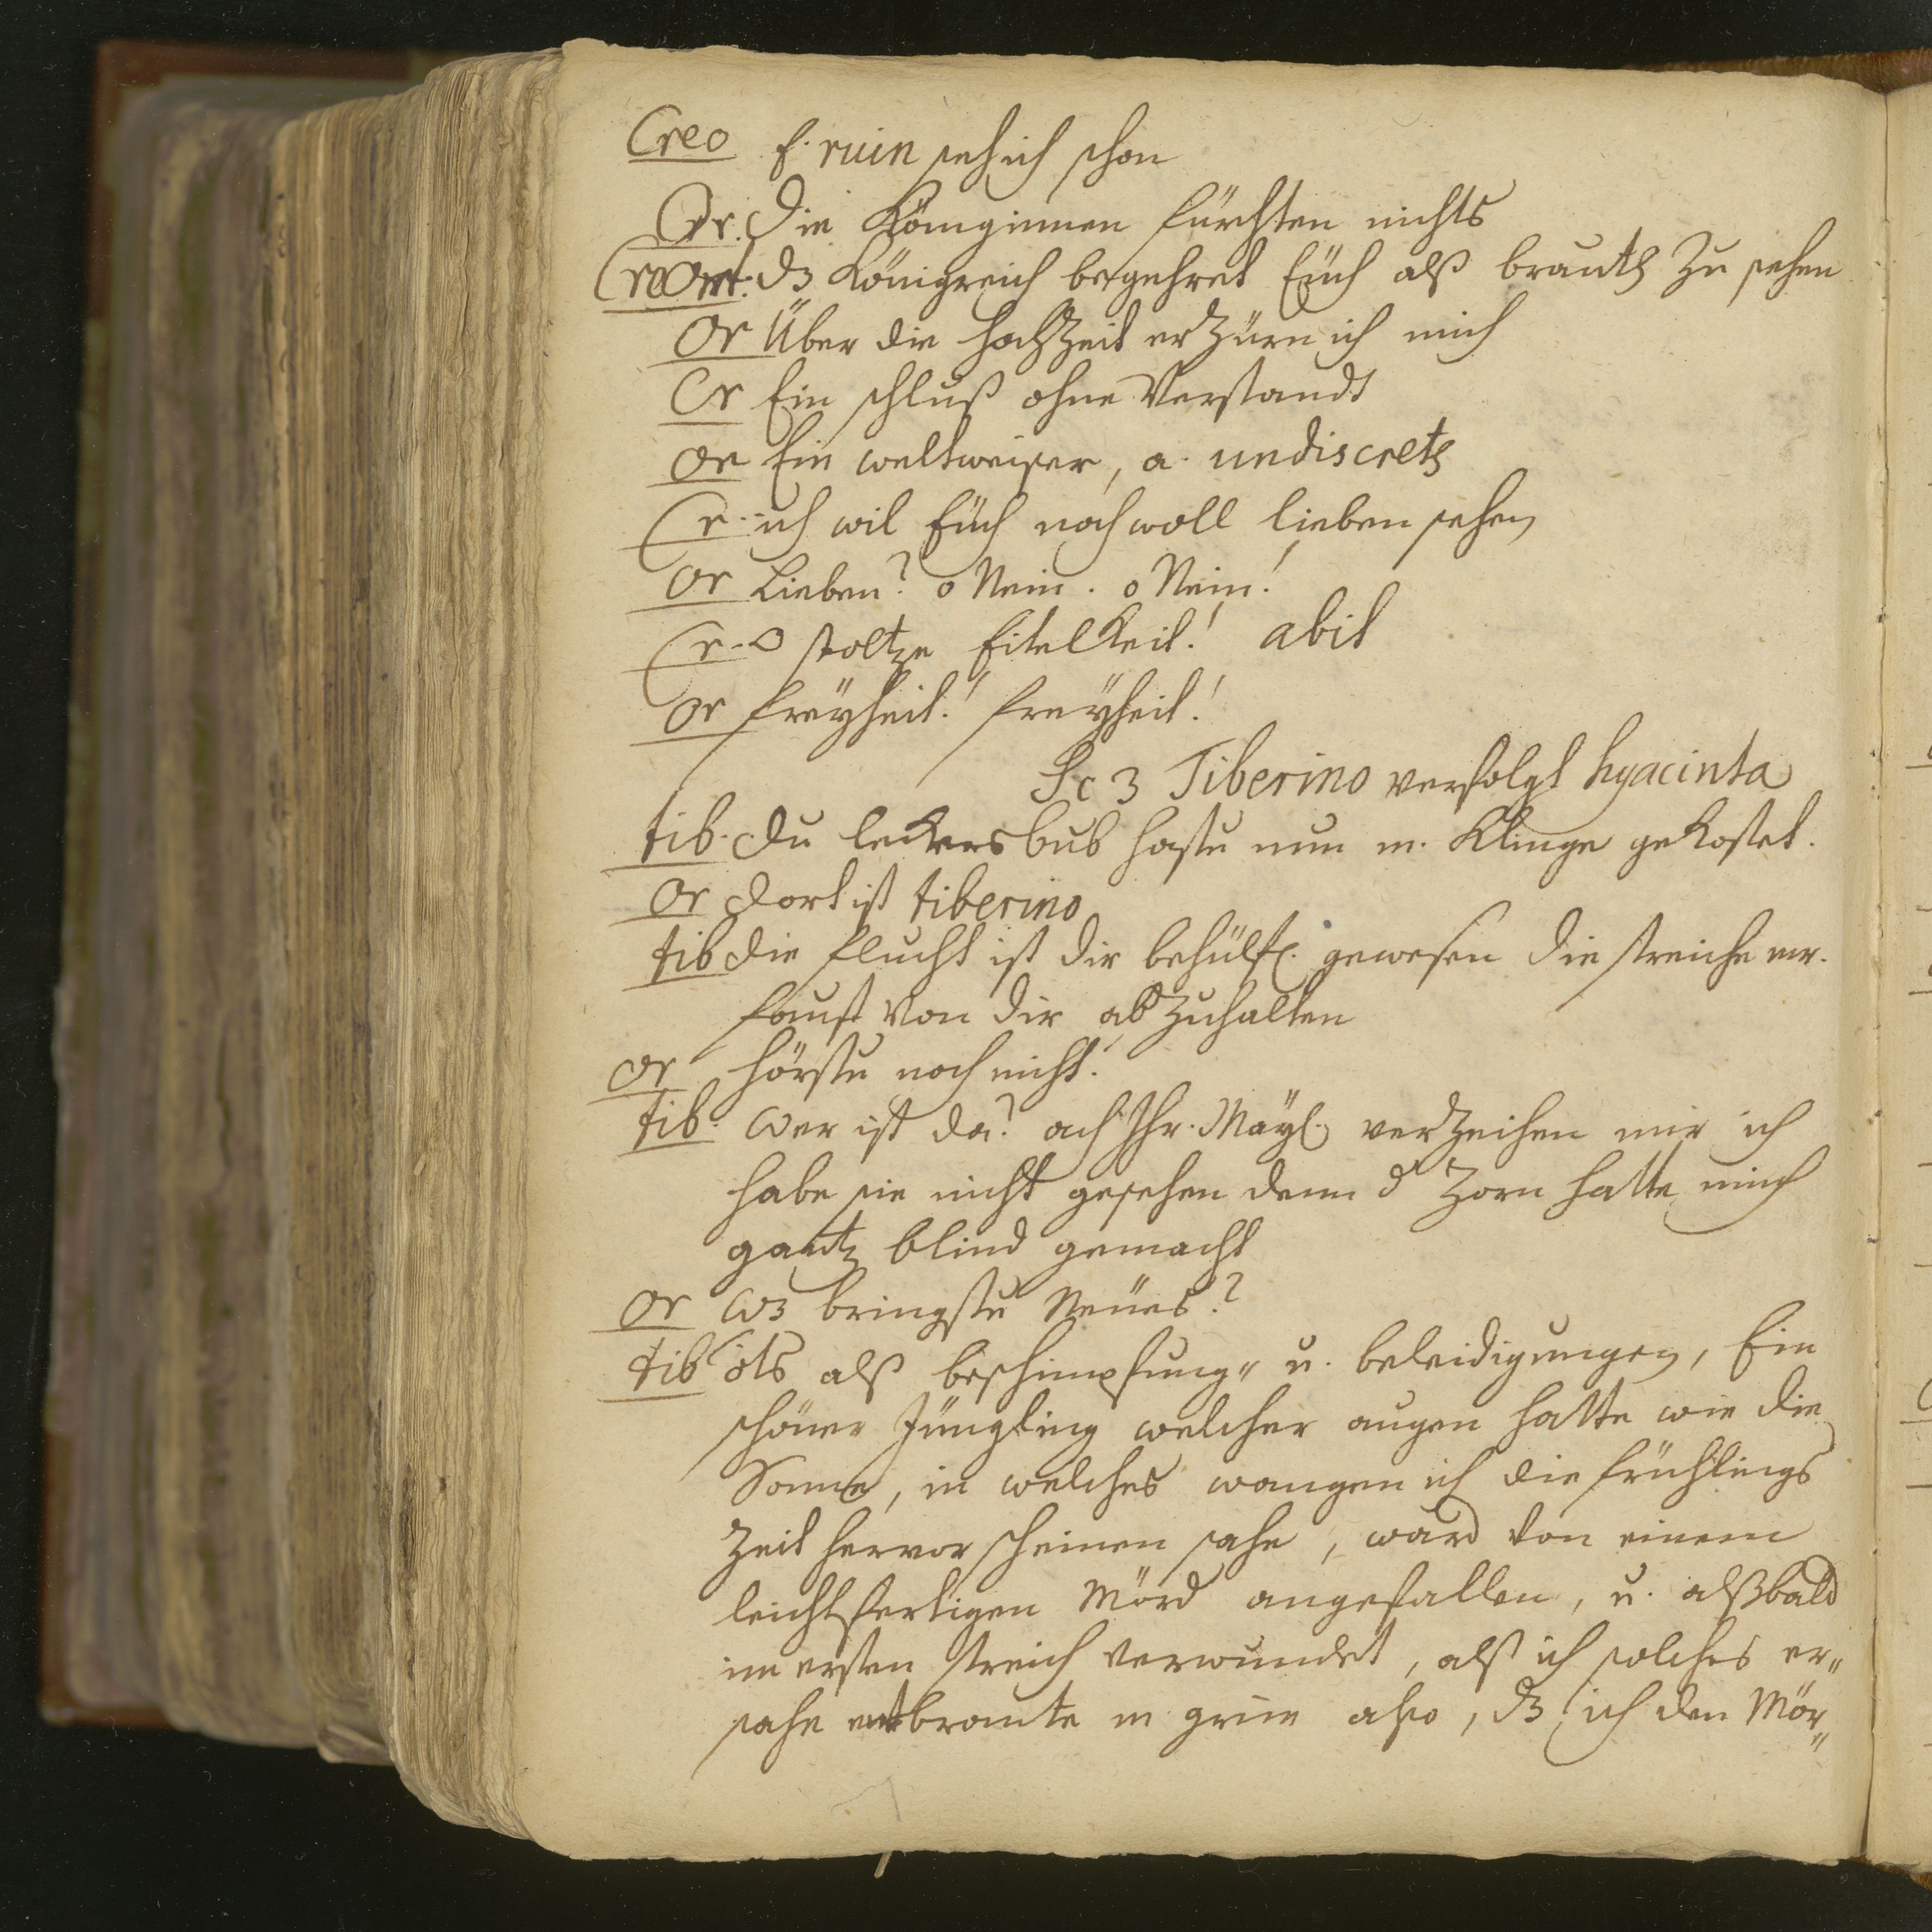 Creo E. ruin seh ich schon
Or. Die Königinnen fürchten nichts
Creo dz Königreich begehret Euch alß brauth zu sehen
Or Über die hochzeit erzürn ich mich
Cr Ein schluß ohne Verstandt
Or Ein weltweiser, a. undiscreth
Cr. ich wil Euch noch woll lieben sehen
Or Lieben? o Nein. o Nein!
Cr. O stoltze Eitelkeit! abit
Or freÿheit! freÿheit!
Sc 3 Tiberino verfolgt hyacinta
tib. Du leckersbub hastu nun m. Klinge gekostet.
Or dort ist tiberino
tib Die flucht ist dir behülfl. gewesen die streiche mr.
faust von dir abzuhalten
Or hörstu noch nicht.
tib. Wer ist da? ach Ihr. Maÿl. verzeihen mir ich
habe sie nicht gesehen denn d Zorn hatte mich
gantz blind gemacht
Or Wz bringstu Neües?
tib alß beschimpfung" u. beleidigungen, Ein
schöner Jüngling welcher augen hatte wie die
Sonne, in welches wangen ich die frühlings
Zeit hervor scheinen sahe, ward von einem
leichtfertigen Mörd angefallen, u. alßbald
im ersten streich verwundet, alß ich solches er"
sahe entbrante m grim also, dz ich den Mör"